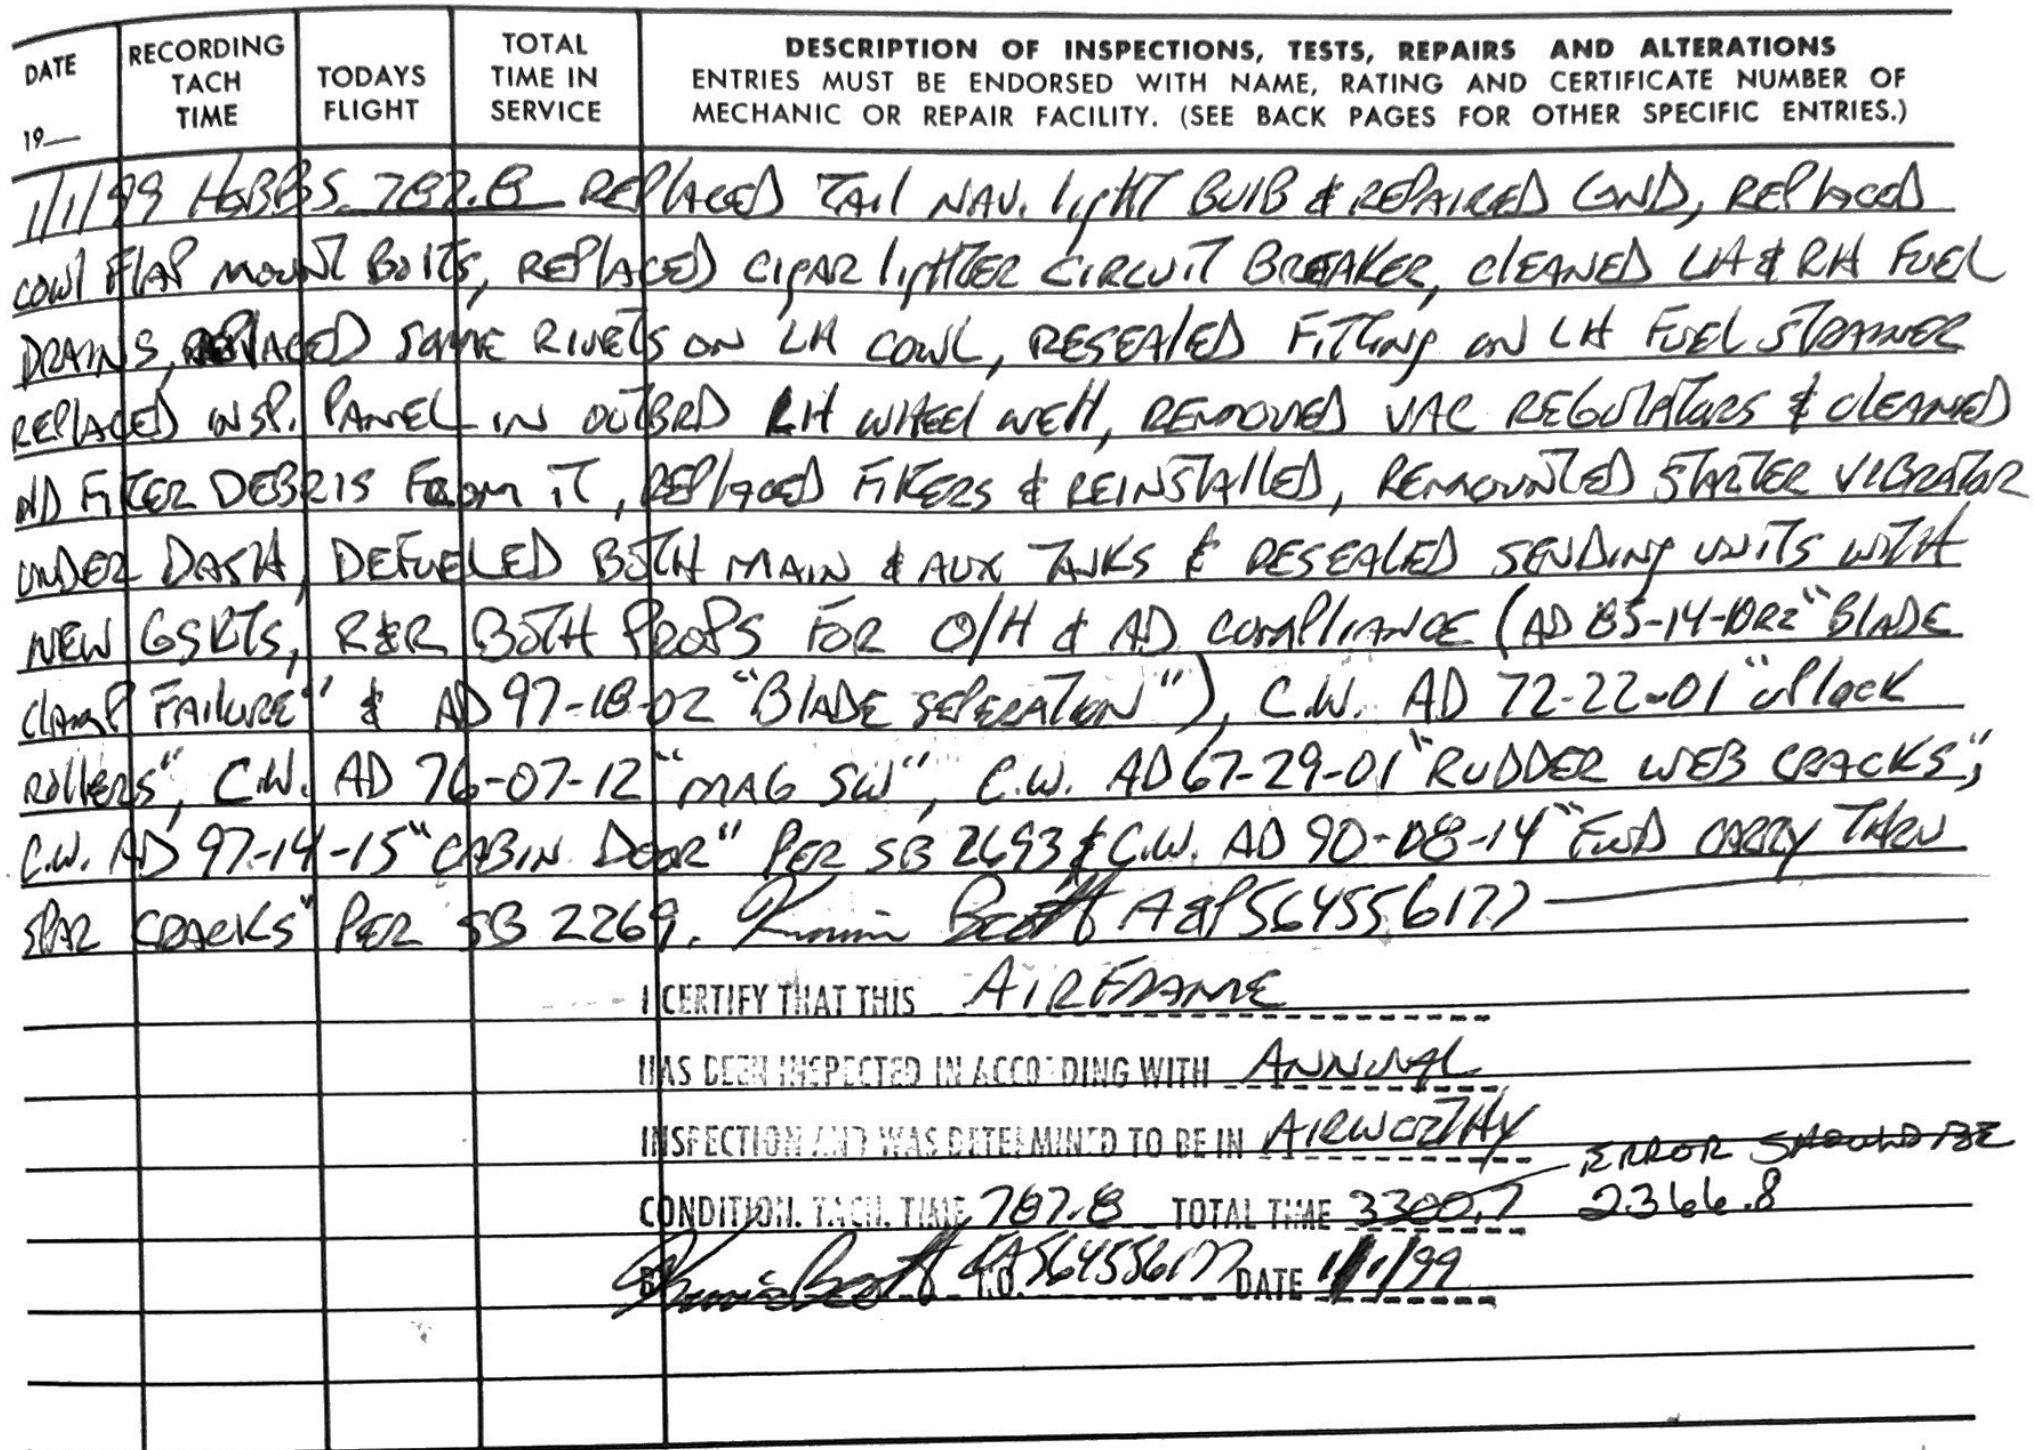 DATE
19—
RECORDING
TACH
TIME
TODAYS
FLIGHT
TOTAL
TIME IN
SERVICE
DESCRIPTION OF INSPECTIONS, TESTS, REPAIRS AND ALTERATIONS
ENTRIES MUST BE ENDORSED WITH NAME, RATING AND CERTIFICATE NUMBER OF
MECHANIC OR REPAIR FACILITY. (SEE BACK PAGES FOR OTHER SPECIFIC ENTRIES.)
1/1/99 HOBBS 787.8 REPLACED TAIL NAV. light BULB & REPAIRED GND, REPLACED
COWL FLAP MOUNT BOLTS, REPLACED CIGAR lighTER CIRCUIT BREAKER, CLEANED LH & RH FUEL
DRAINS, REPLACED SOME RIVETS ON LH COWL, RESEALED FITTING ON LH FUEL STRAINER
REPLACED INSP. PANEL IN OUTBRD LH WHEEL WELL, REMOVED VAC REGULATORS & CLEANED
FILTER DEBRIS FROM IT, REPLACED FILTERS & REINSTALLED, REMOUNTED STARTER VIBRATOR
UNDER DASH, DEFUELED BOTH MAIN & AUX TANKS & RESEALED SENDING UNITS WITH
NEW GSKTS, R&R BOTH PROPS FOR O/H & AD COMPLIANCE (AD 85-14-10R2 "BLADE
CLAMP FAILURE" & AD 97-18-02 "BLADE SEPERATION"), C.W. AD 72-22-01 "UPLOCK
ROLLERS", C.W. AD 76-07-12 "MAG SW", C.W. AD 67-29-01 "RUDDER WEB CRACKS",
C.W. AD 97-14-15 "CABIN DOOR" PER SB 2693 & C.W. AD 90-08-14 "FWD CARRY THRU
SPAR CRACKS" PER SB 2269. A&P 564556177
I CERTIFY THAT THIS AIRFRAME
HAS BEEN INSPECTED IN ACCORDING WITH ANNUAL
INSPECTION AND WAS DETERMINED TO BE IN AIRWORTHY
ERROR SHOULD BE
CONDITION. TACH. TIME 787.8 TOTAL TIME 3300.7 2366.8
BY I.D. IA564556177 DATE 1/1/99